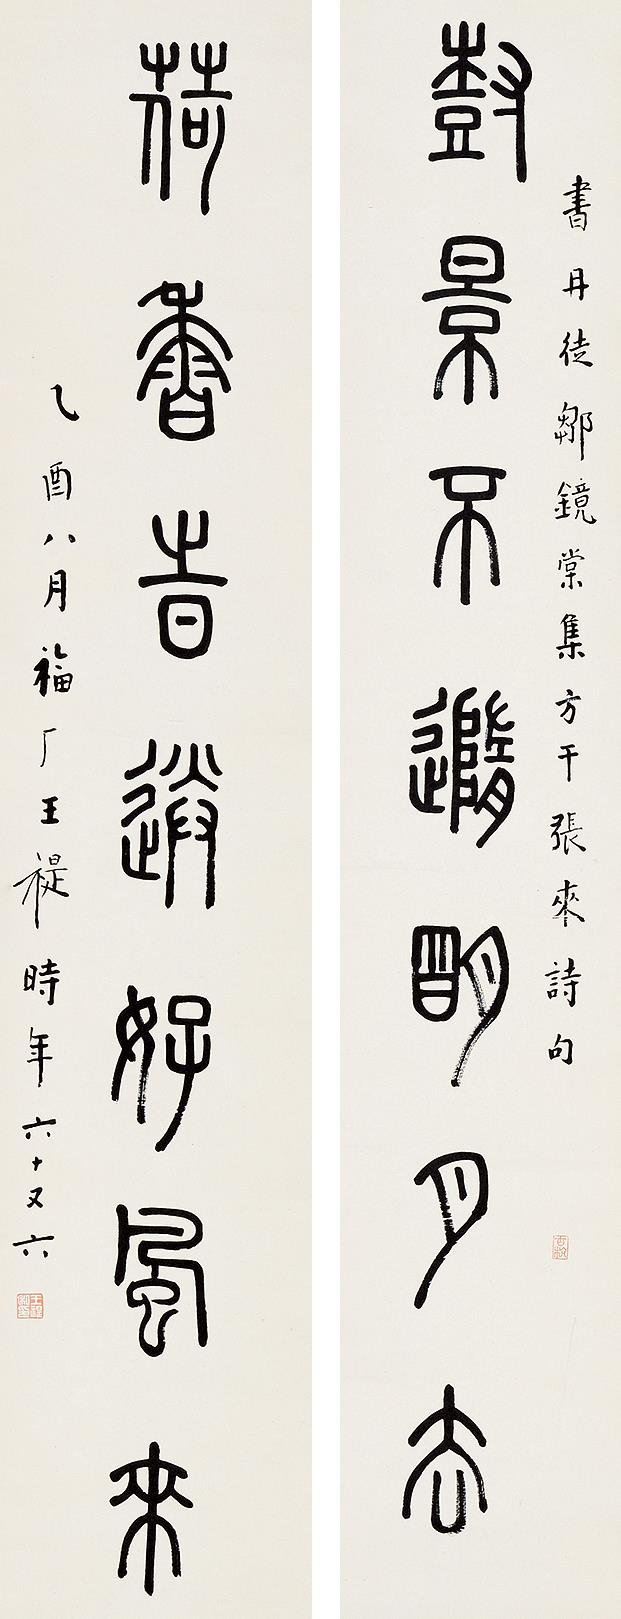 書丹徒鄒鏡棠集方干張來詩句
尌景不隨朙月去
荷香旹送好風來
乙酉八月福厂王禔時年六十又六